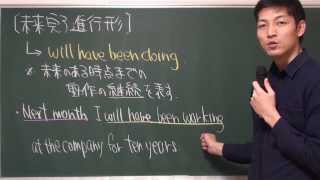 [未来完了進行形]
↳ will have been doing
※ 未来のある時点までの
動作の継続を表す.
・Next month I will have been working
at the company for ten years.